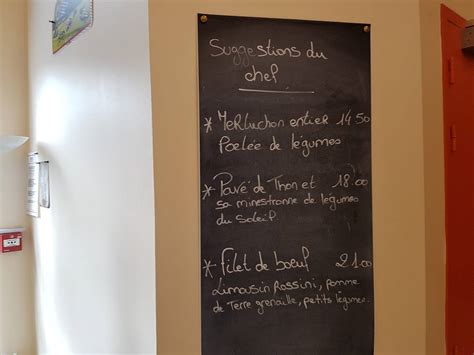 Suggestions du
chef
* Merluchon entier 14.50
Poelée de légumes
* Pavé de Thon et 18.00
sa minestronne de légumes
du soleil
* Filet de boeuf 21.00
Limousin Rossini, pomme
de Terre grenaille, petits légumes.